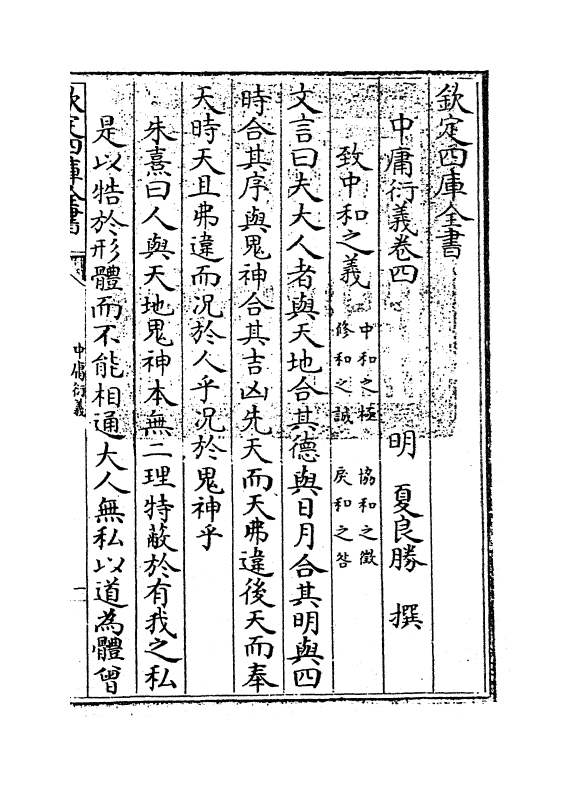 欽定四庫全書
中庸衍義卷四 明 夏良勝 撰
致中和之義 中和之極 協和之徵 修和之誠 戾和之咎
文言曰夫大人者與天地合其德與日月合其明與四
時合其序與鬼神合其吉凶先天而天弗違後天而奉
天時天且弗違而況於人乎況於鬼神乎
朱熹曰人與天地鬼神本無二理特蔽於有我之私
是以牿於形體而不能相通大人無私以道為體曾
欽定四庫全書
中庸衍義
一